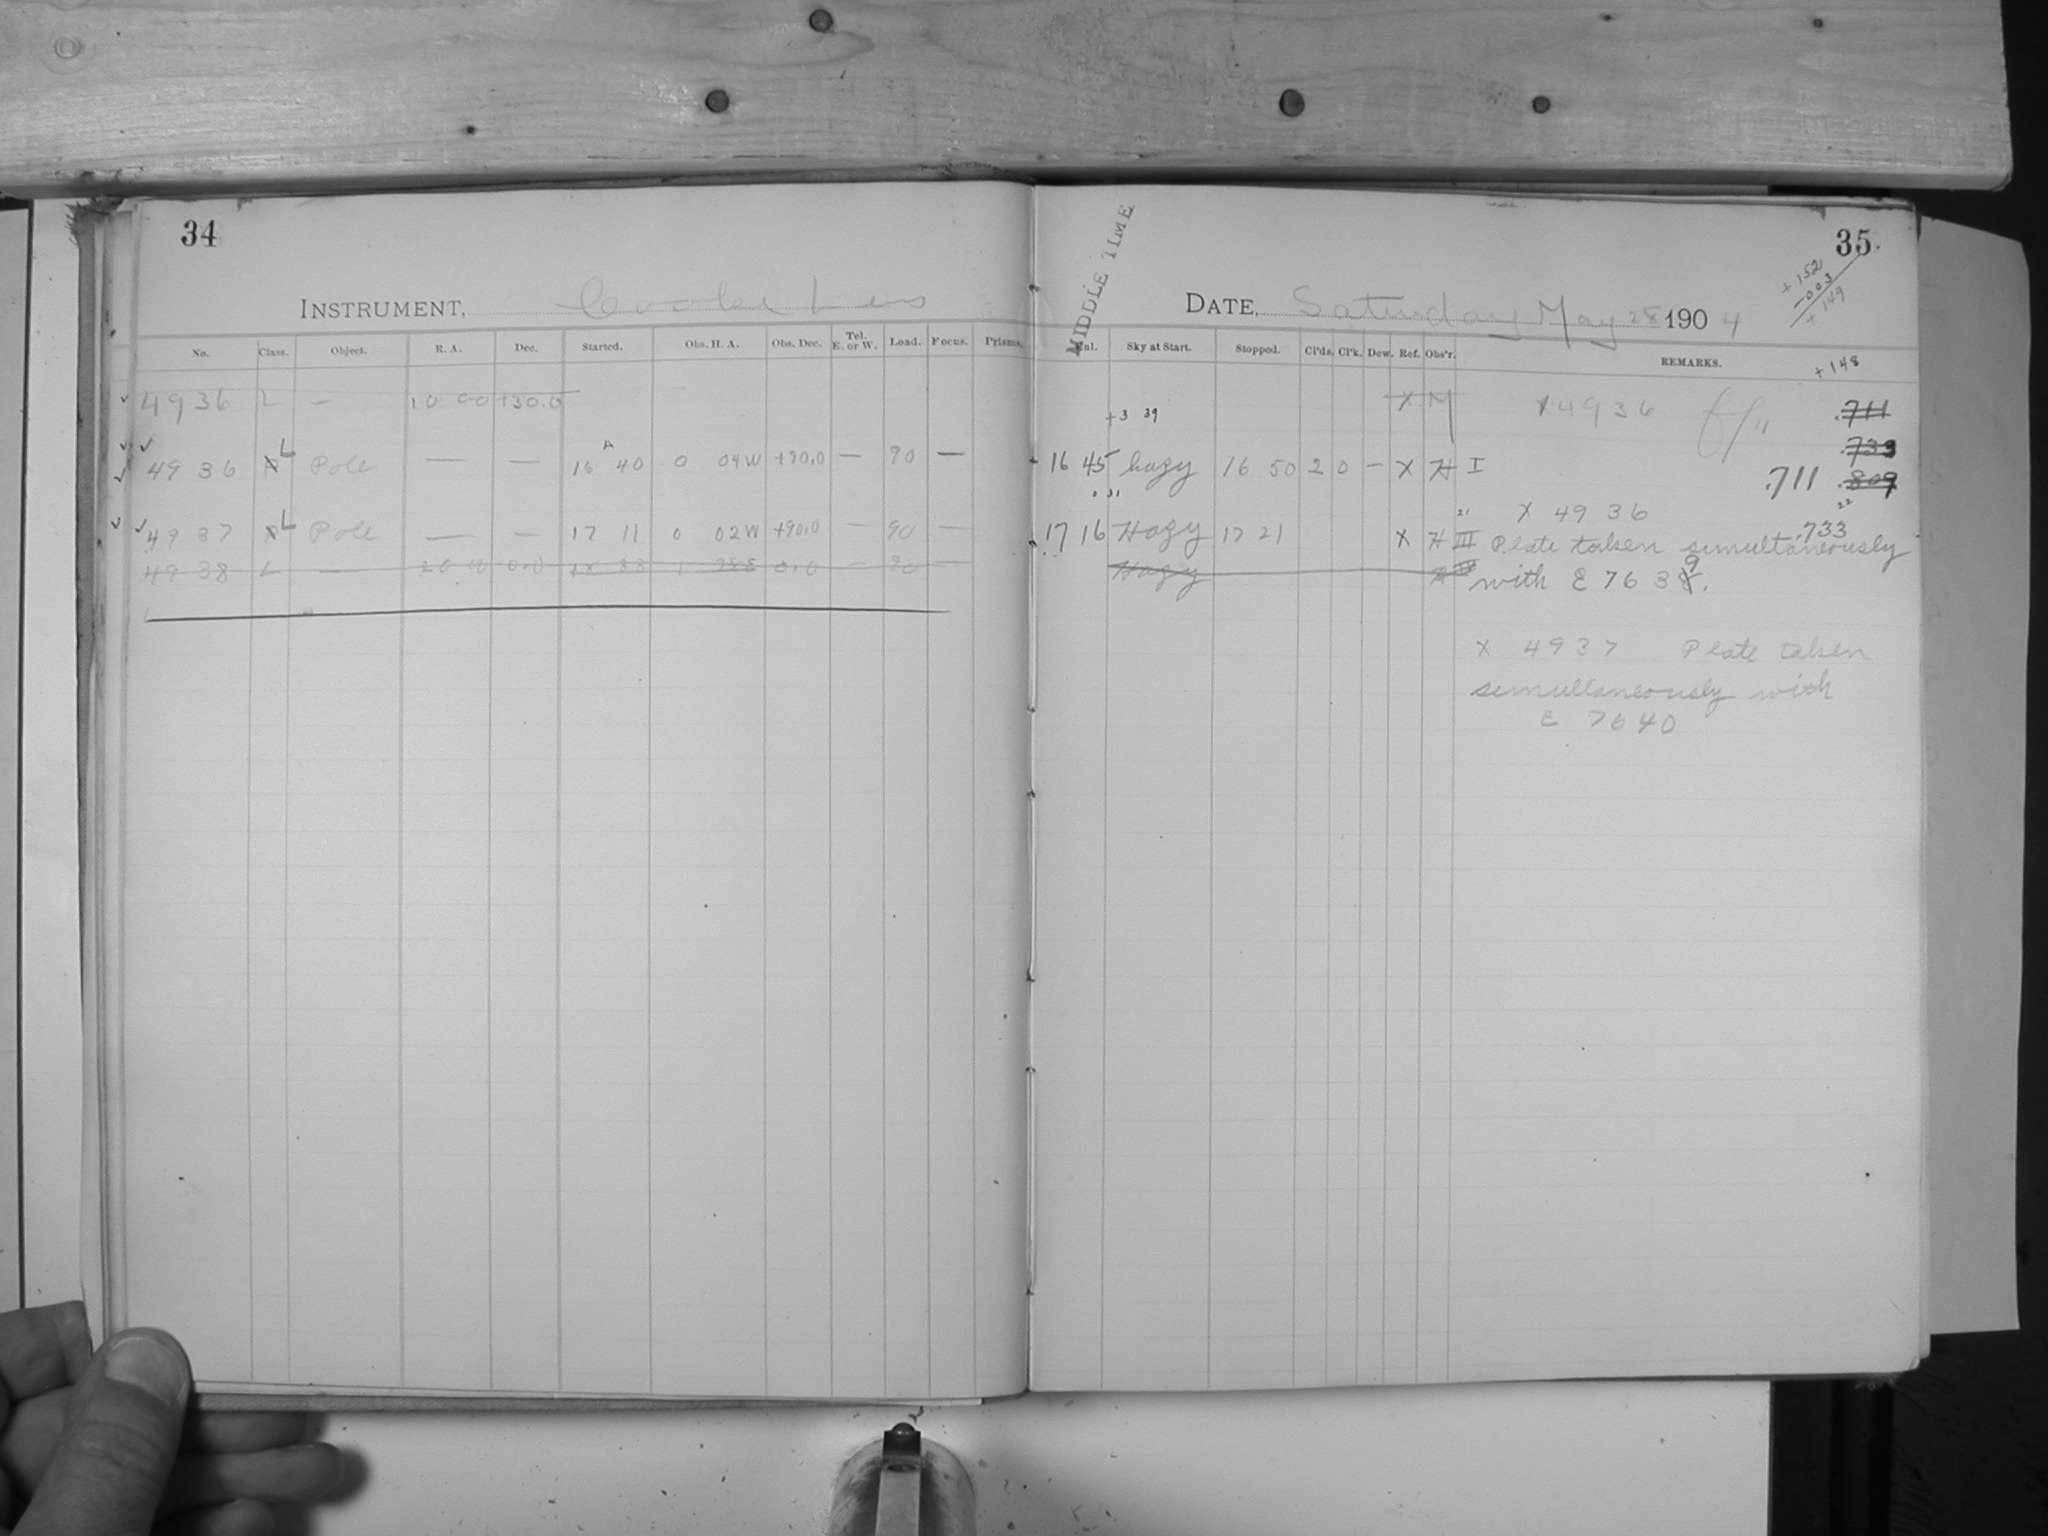 34
INSTRUMENT, Cooke Lens
No. Class. Object. R. A. Dec. Started. Obs. H. A. Obs. Dec. Tel. E. or W. Load. Focus. Prisms.
4936 L — 10 00 +30.0
4936 L Pole — — 16 40 0 04W +90.0 — 90 —
4937 L Pole — — 17 11 0 02W +90.0 — 90 —
4938 L — 0.0 1 0.0 — 90 —
35
MIDDLE TIME
+152
-003
+149
DATE, Saturday May 28 1904
Sky at Start. Stopped. Cl'ds. Cl'k. Dew. Ref. Obs'r. REMARKS.
+148
X M X 4936 .711
+3 39
.733
16 45 hazy 16 50 2 0 — X H I .711 .809
.031 22
21 X 4936 .733
17 16 Hazy 17 21 X H III Plate taken simultaneously
Hazy H IV with E 7639.
X 4937 Plate taken
simultaneously with
E 7640